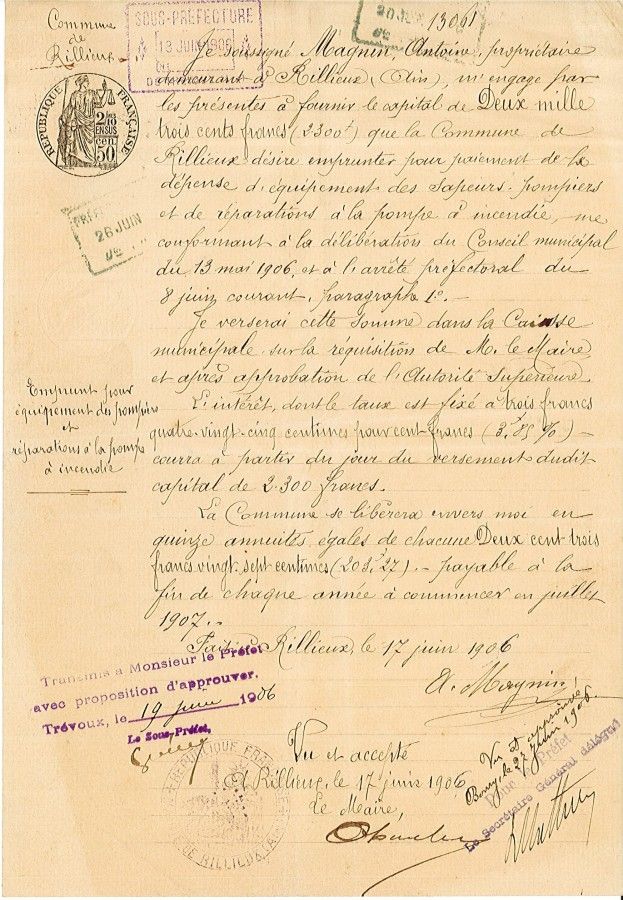 Commune
de
Rillieux
SOUS-PREFECTURE
18 JUIN 1906
1306
REPUBLIQUE FRANÇAISE
2/10
EN SUS
50 cen.
26 JUIN
Je soussigné Magnin, Antoine, propriétaire
demeurant à Rillieux (Ain), m'engage par
les présentes à fournir le capital de Deux mille
trois cents francs (2300f) que la Commune de
Rillieux désire emprunter pour paiement de la
dépense d'équipement des sapeurs-pompiers
et de réparations à la pompe à incendie, me
conformant à la délibération du Conseil municipal
du 13 mai 1906, et à l'arrêté préfectoral du
8 juin courant, paragraphe 1o. -
Je verserai cette somme dans la Caisse
municipale sur la réquisition de M. le Maire
et après approbation de l'Autorité Supérieure.
Emprunt pour
équipement des pompiers
et
réparations à la pompe
à incendie
L'intérêt, dont le taux est fixé à trois francs
quatre-vingt-cinq centimes pour cent francs (3f,85 %) -
courra à partir du jour du versement dudit
capital de 2.300 francs.
La Commune se libèrera envers moi en
quinze annuités égales de chacune Deux cent trois
francs vingt-sept centimes (203f,27). - payable à la
fin de chaque année à commencer en juillet
1907. -
Fait à Rillieux, le 17 juin 1906
A. Magnin
Transmis à Monsieur le Préfet
avec proposition d'approuver.
Trévoux, le 19 juin 1906
Le Sous-Préfet,
Vu et accepté
A Rillieux, le 17 juin 1906
Le Maire,
Vu et approuvé
Bourg, le 27 juin 1906
Pour le Préfet
Le Secrétaire Général délégué
REPUBLIQUE FRANÇAISE
DE RILLIEUX